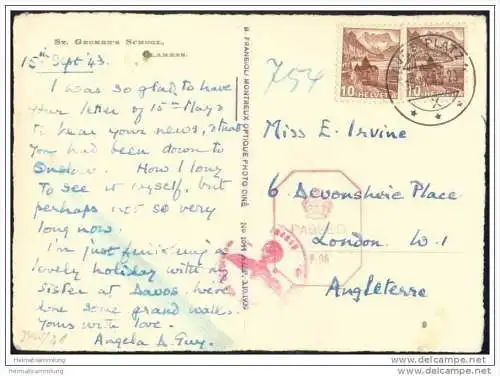 St. George's School,
Clarens.
15th Sept '43.
I was so glad to have
your letter of 15th May &
to hear your news, & that
you had been down to
Onslow. How I long
to see it myself, but
perhaps not so very
long now.
I'm just finishing a
lovely holiday with my
sister at Davos. We've
done some grand walks.
Yours with love.
Angela L. Guy.
© FRANSIOLI MONTREUX OPTIQUE PHOTO CINÉ
754
10 HELVETIA
10 HELVETIA
PLATZ
Miss E. Irvine
6 Devonshire Place
London. W.1
Angleterre
PASSED
Heimatsammlung